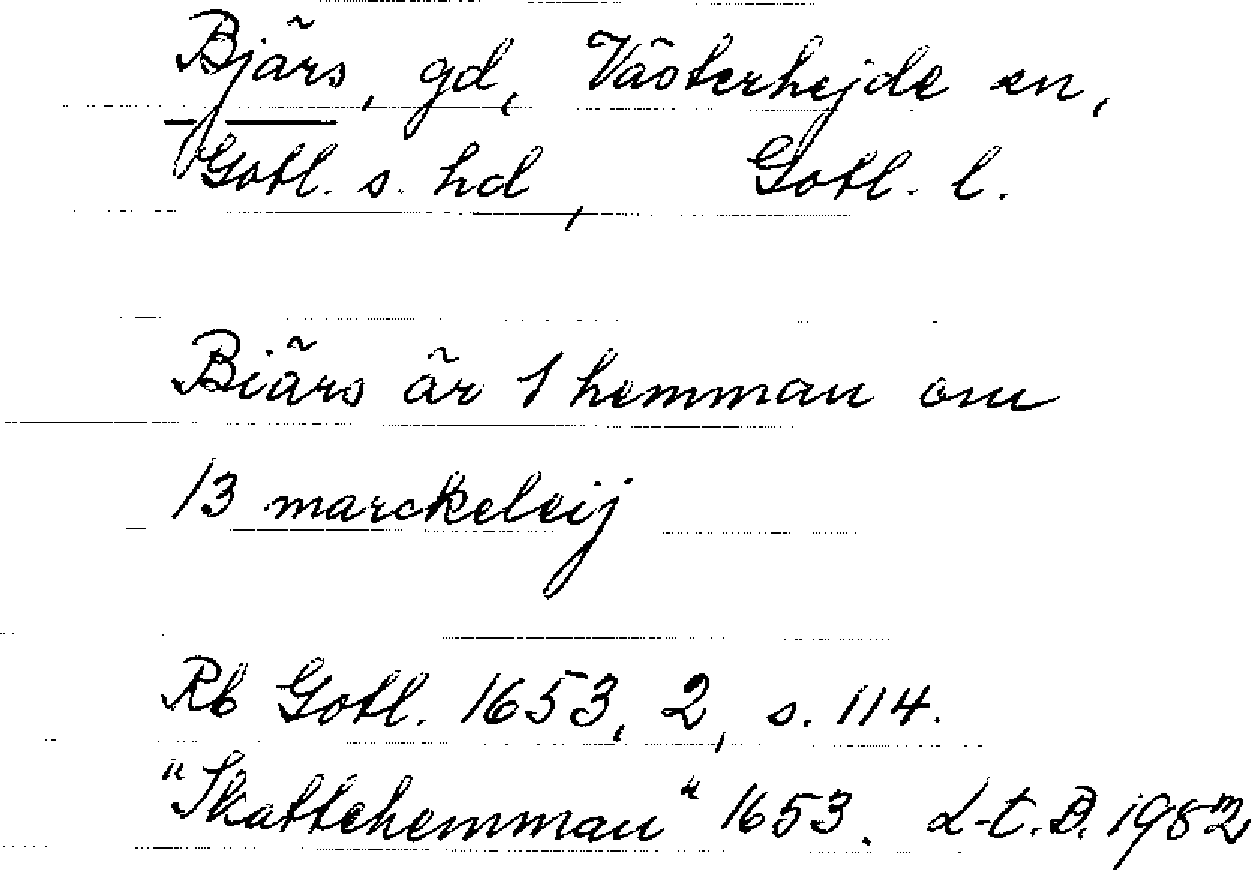 Bjärs, gd, Västerhejde sn,
Gotl. s. hd, Gotl. l.
Biärs är 1 hemman om
13 marckeleij
Rb Gotl. 1653, 2, s. 114.
"Skattehemman" 1653. L-t. B. 1982